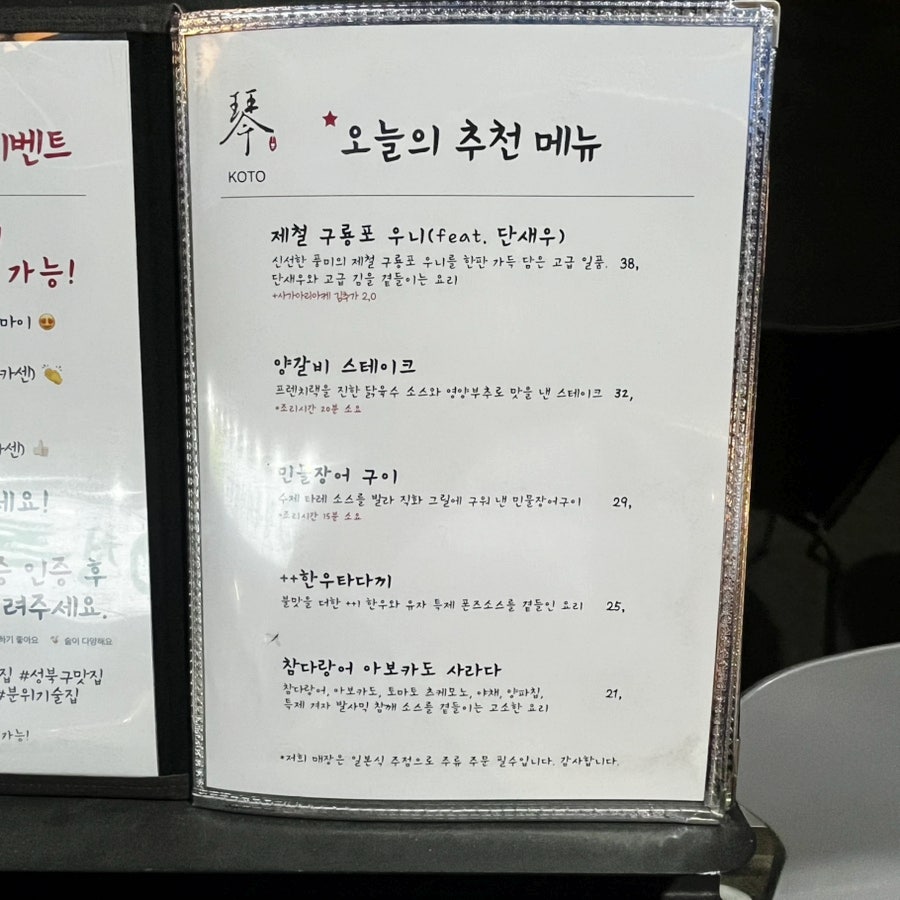 이벤트
가능!
마이 😍
카센) 👏
카센) 👍
세요!
증 인증 후
려주세요.
하기 좋아요 술이 다양해요
집 #성북구맛집
#분위기술집
가능!
琴
KOTO
오늘의 추천 메뉴
제철 구룡포 우니(feat. 단새우)
신선한 풍미의 제철 구룡포 우니를 한판 가득 담은 고급 일품. 38,
단새우와 고급 김을 곁들이는 요리
+사가아리아케 김추가 2,0
양갈비 스테이크
프렌치랙을 진한 닭육수 소스와 영양부추로 맛을 낸 스테이크 32,
*조리시간 20분 소요
민물장어 구이
수제 타레 소스를 발라 직화 그릴에 구워 낸 민물장어구이 29,
*조리시간 15분 소요
++한우타다끼
불맛을 더한 ++1 한우와 유자 특제 폰즈소스를 곁들인 요리 25,
참다랑어 아보카도 사라다
참다랑어, 아보카도, 토마토 츠케모노, 야채, 양파칩, 21,
특제 겨자 발사믹 참깨 소스를 곁들이는 고소한 요리
*저희 매장은 일본식 주점으로 주류 주문 필수입니다. 감사합니다.